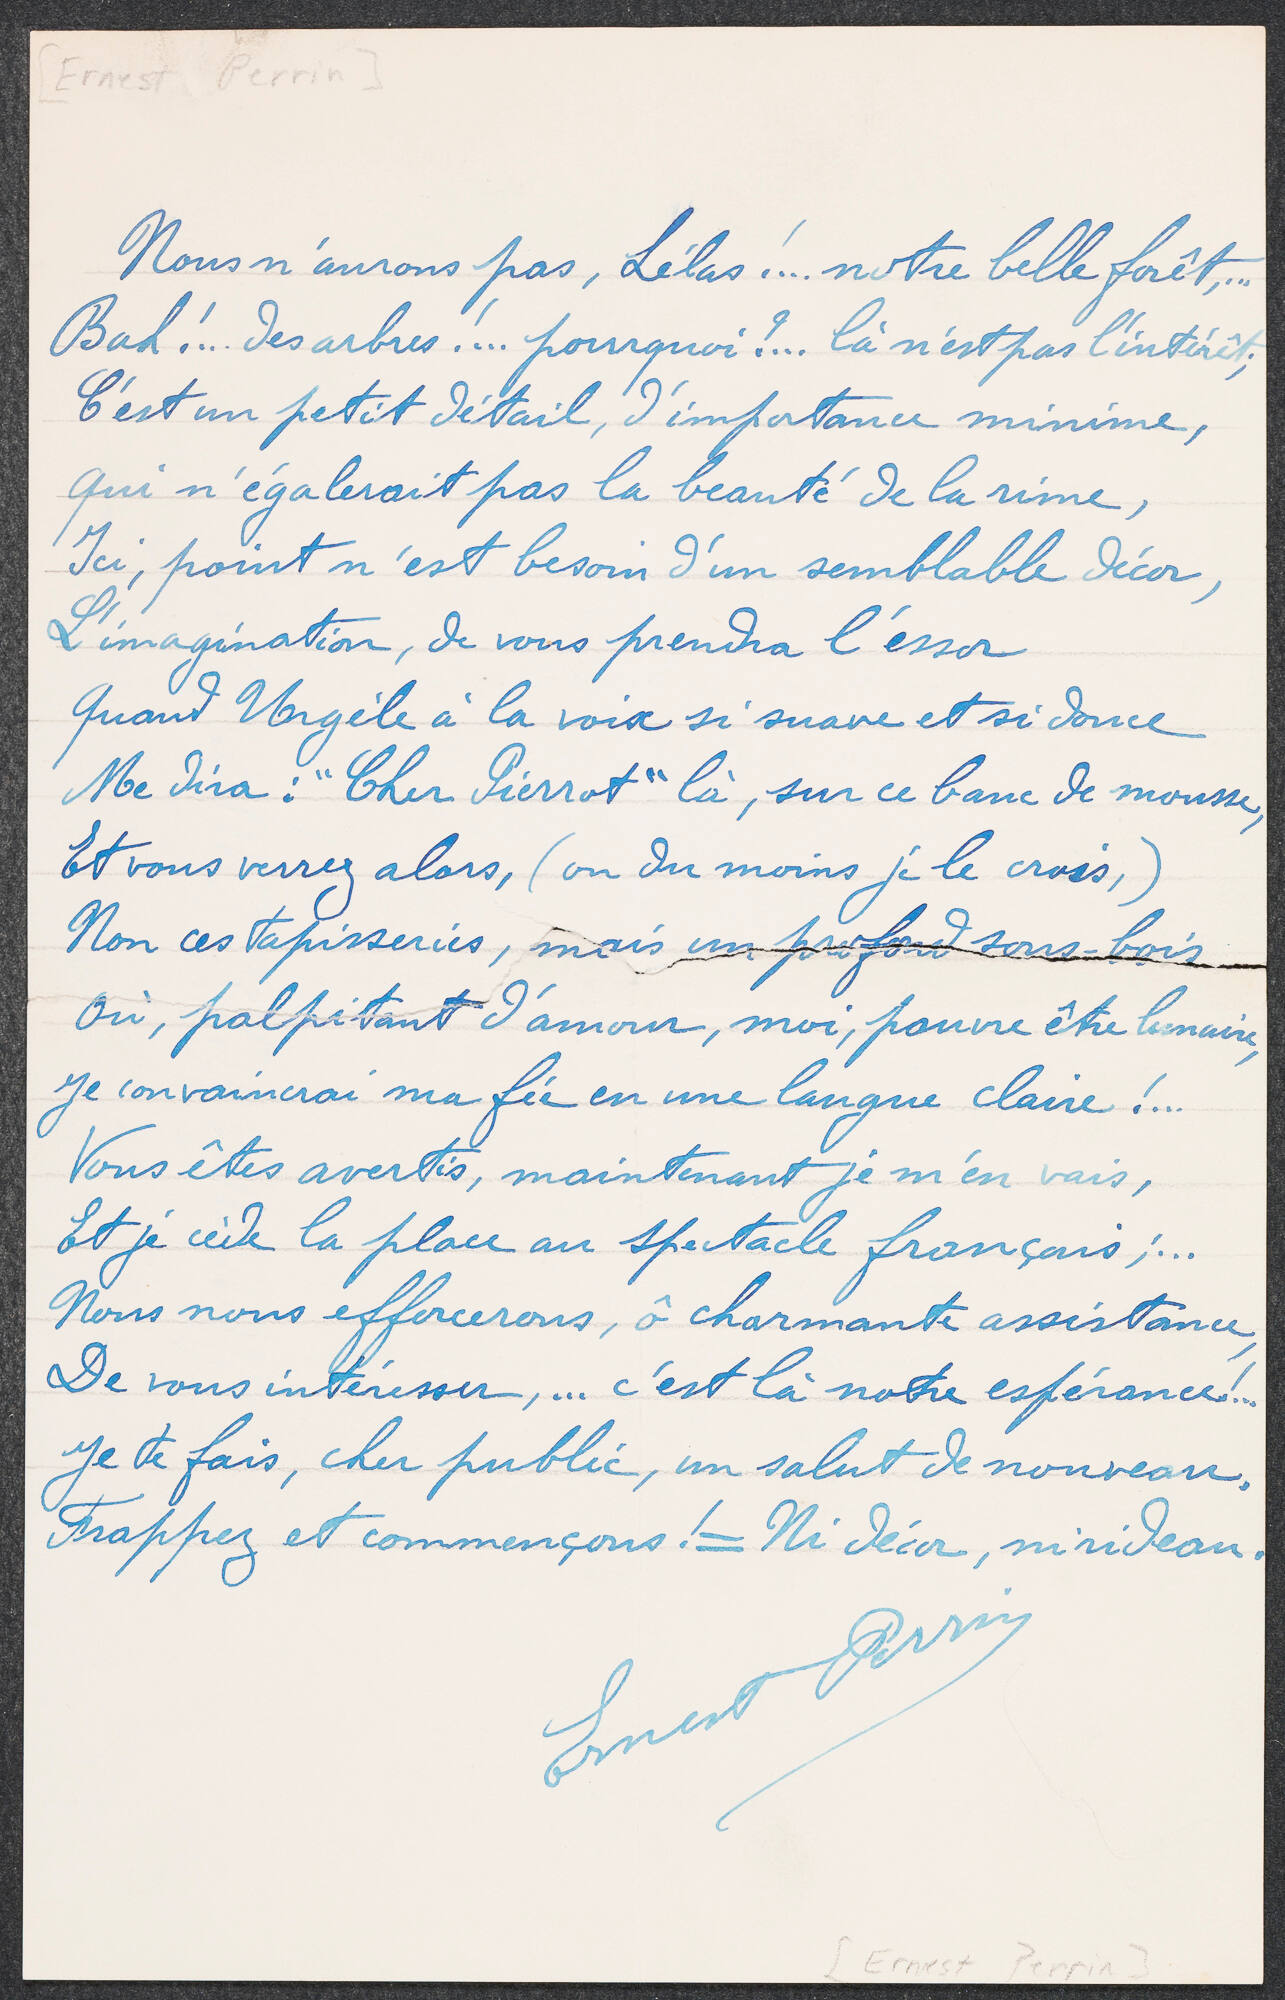 [Ernest Perrin]
Nous n'aurons pas, hélas !... notre belle forêt,...
Bah !... des arbres !... pourquoi ?... là n'est pas l'intérêt;
C'est un petit détail, d'importance minime,
qui n'égalerait pas la beauté de la rime,
Ici, point n'est besoin d'un semblable décor,
L'imagination, de vous prendra l'essor
quand Urgèle à la voix si suave et si douce
Me dira : "Cher Pierrot" là, sur ce banc de mousse,
Et vous verrez alors, (ou du moins je le crois,)
Non ces tapisseries, mais un profond sous-bois
Où, palpitant d'amour, moi, pauvre être lunaire,
Je convaincrai ma fée en une langue claire !...
Vous êtes avertis, maintenant je m'en vais,
Et je cède la place au spectacle français ;...
Nous nous efforcerons, ô charmante assistance,
De vous intéresser,... c'est là notre espérance !...
Je te fais, cher public, un salut de nouveau.
Frappez et commençons ! = Ni décor, ni rideau.
Ernest Perrin
[Ernest Perrin]